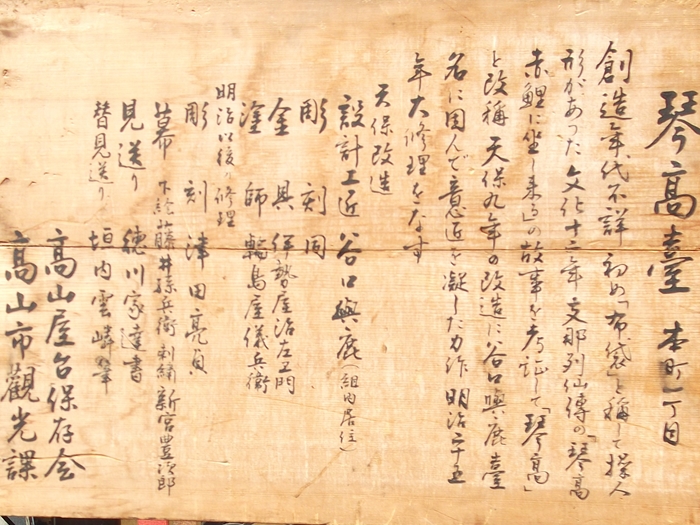 琴高臺 本町一丁目
創造年代不詳 初め「布袋」と称して操人
形があった 文化十二年 支那列仙傳の「琴高
赤鯉に坐し来る」の故事を考証して「琴高」
と改称 天保九年の改造に谷口與鹿臺
名に因んで意匠を凝した力作 明治二十五
年大修理をなす
天保改造
設計工匠 谷口與鹿（組内居住）
彫 刻 同
金 具 伊勢屋治左エ門
塗 師 輪島屋儀兵衛
明治以後の修理
彫 刻 津田亮貞
幕 下絵 藤井孫兵衛 刺繍 新宮豊次郎
見送り 徳川家達書
替見送り 垣内雲嶙筆
高山屋台保存会
高山市觀光課